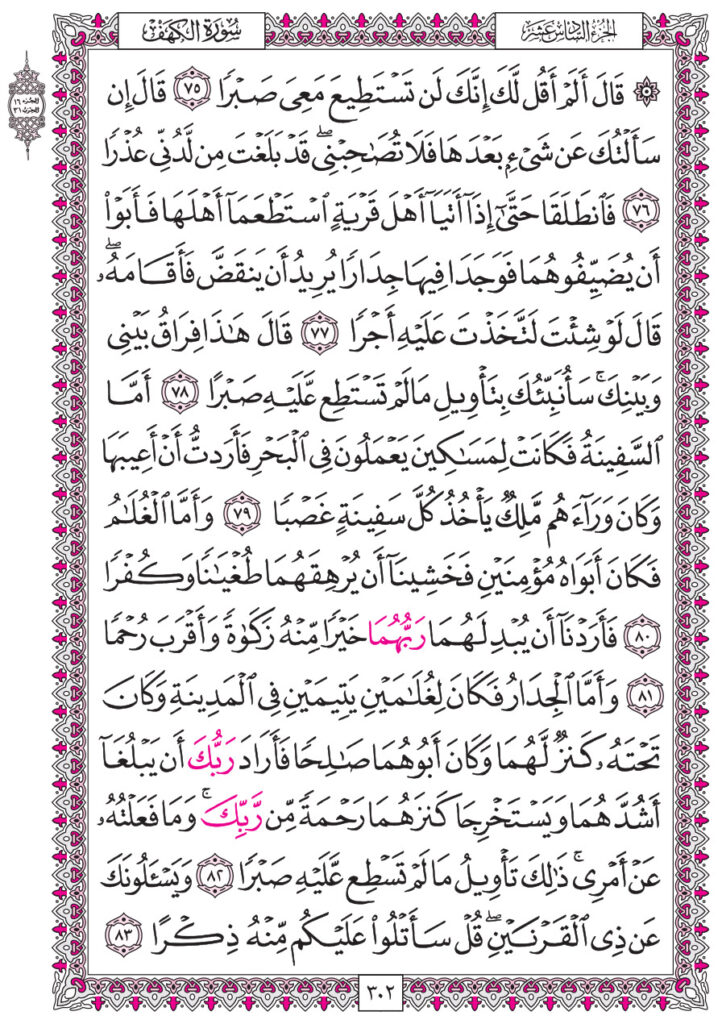 الجزء السادس عشر
سورة الكهف
الجزء ١٦
الحزب ٣١
۞ قَالَ أَلَمْ أَقُل لَّكَ إِنَّكَ لَن تَسْتَطِيعَ مَعِىَ صَبْرًا ٧٥ قَالَ إِن
سَأَلْتُكَ عَن شَىْءٍۭ بَعْدَهَا فَلَا تُصَـٰحِبْنِى ۖ قَدْ بَلَغْتَ مِن لَّدُنِّى عُذْرًا
٧٦ فَٱنطَلَقَا حَتَّىٰٓ إِذَآ أَتَيَآ أَهْلَ قَرْيَةٍ ٱسْتَطْعَمَآ أَهْلَهَا فَأَبَوْا۟
أَن يُضَيِّفُوهُمَا فَوَجَدَا فِيهَا جِدَارًا يُرِيدُ أَن يَنقَضَّ فَأَقَامَهُۥ ۖ
قَالَ لَوْ شِئْتَ لَتَّخَذْتَ عَلَيْهِ أَجْرًا ٧٧ قَالَ هَـٰذَا فِرَاقُ بَيْنِى
وَبَيْنِكَ ۚ سَأُنَبِّئُكَ بِتَأْوِيلِ مَا لَمْ تَسْتَطِع عَّلَيْهِ صَبْرًا ٧٨ أَمَّا
ٱلسَّفِينَةُ فَكَانَتْ لِمَسَـٰكِينَ يَعْمَلُونَ فِى ٱلْبَحْرِ فَأَرَدتُّ أَنْ أَعِيبَهَا
وَكَانَ وَرَآءَهُم مَّلِكٌ يَأْخُذُ كُلَّ سَفِينَةٍ غَصْبًا ٧٩ وَأَمَّا ٱلْغُلَـٰمُ
فَكَانَ أَبَوَاهُ مُؤْمِنَيْنِ فَخَشِينَآ أَن يُرْهِقَهُمَا طُغْيَـٰنًا وَكُفْرًا
٨٠ فَأَرَدْنَآ أَن يُبْدِلَهُمَا رَبُّهُمَا خَيْرًا مِّنْهُ زَكَوٰةً وَأَقْرَبَ رُحْمًا
٨١ وَأَمَّا ٱلْجِدَارُ فَكَانَ لِغُلَـٰمَيْنِ يَتِيمَيْنِ فِى ٱلْمَدِينَةِ وَكَانَ
تَحْتَهُۥ كَنزٌ لَّهُمَا وَكَانَ أَبُوهُمَا صَـٰلِحًا فَأَرَادَ رَبُّكَ أَن يَبْلُغَآ
أَشُدَّهُمَا وَيَسْتَخْرِجَا كَنزَهُمَا رَحْمَةً مِّن رَّبِّكَ ۚ وَمَا فَعَلْتُهُۥ
عَنْ أَمْرِى ۚ ذَٰلِكَ تَأْوِيلُ مَا لَمْ تَسْطِع عَّلَيْهِ صَبْرًا ٨٢ وَيَسْـَٔلُونَكَ
عَن ذِى ٱلْقَرْنَيْنِ ۖ قُلْ سَأَتْلُوا۟ عَلَيْكُم مِّنْهُ ذِكْرًا ٨٣
٣٠٢